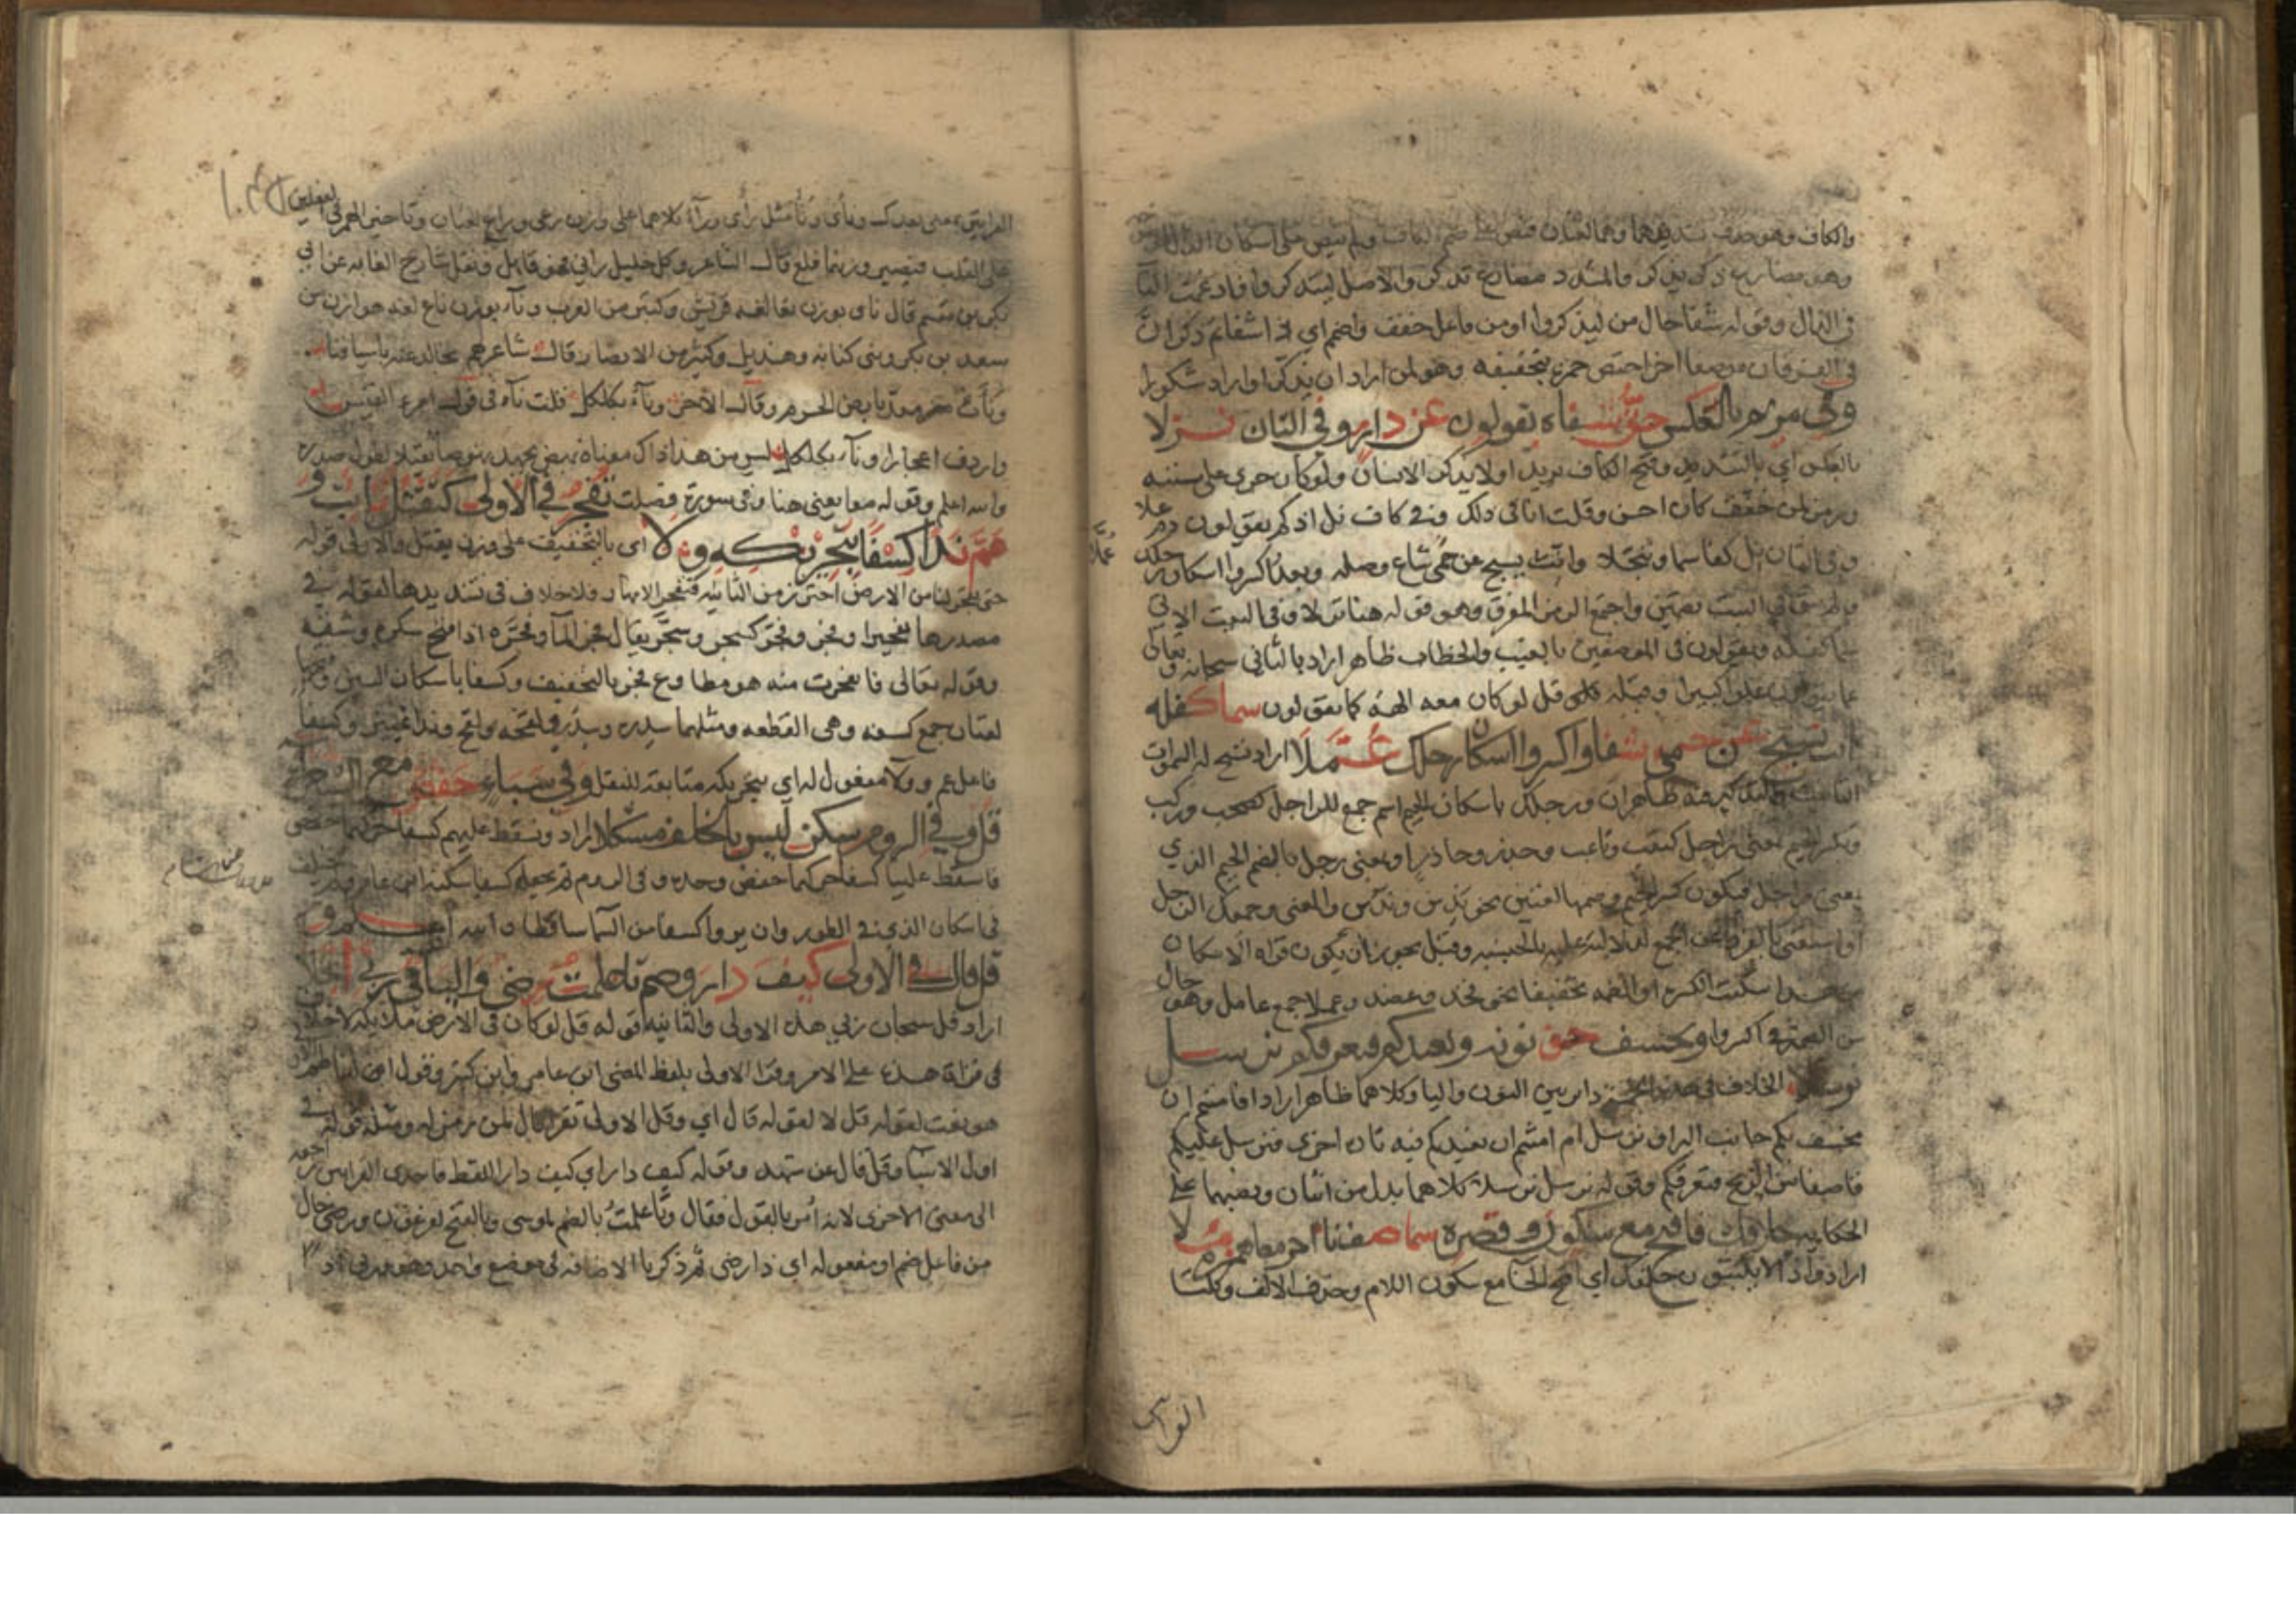 والكاف وهو حذف تشديدهما وهما لغتان فنص على ضم الكاف ولم ينص على اسكان الذال
وهو مضارع ذكر يذكر والمشدد مضارع تذكر والاصل ليتذكروا فادغمت التا
في الذال وقوله شفا حال من ليذكروا او من فاعل خفف واضمم اي ذا شفا ثم ذكر ان
في الفرقان موضعا اخر اختص حمزة بتخفيفه وهو لمن اراد ان يذكر او اراد شكورا
وفي مريم بالعكس حق شفاءه يقولون عن دار وفي الثان نزلا
بالعكس اي بالتشديد وفتح الكاف يريد اولا يذكر الانسان ولو كان جرى على سننه
ورمز لمن خفف كان احسن وقلت انا في ذلك وفي كاف نل اذ كم يقولون دم علا
وفي الثان نل كفا سما وتبجلا وانث يسبح عن حمى شاع وصله وبعد اكسروا اسكان رجلك عملا
في البيت واجمع الرمز المفرق وهو قوله هنا نزلا وفي البيت الاتي
سما كفله ويقولون في الموضعين بالغيب والخطاب ظاهر اراد بالثاني سبحانه وتعالى
عما يقولون علوا كبيرا وقبله قل لو كان معه الهة كما يقولون سما كفله
انث يسبح عن حمى شفا واكسروا اسكان رجلك عملا اراد تسبح له السموات
التانيث والتذكير فيه ظاهران ورجلك باسكان الجيم اسم جمع للراجل كصحب وركب
وبكسر الجيم بمعنى راجل كتعب وتاعب وحذر وحاذر او بمعنى رجل بالضم الجيم الذي
بمعنى راجل فيكون كسر الجيم وضمها لغتين نحو ندس وندس والمعنى وجمعك الرجل
او استغنى بالفرد عن الجمع لدلالته عليه بالجنسية وقيل يجوز ان يكون قراة الاسكان
من هذا سكنت الكسرة او الضمة تخفيفا نحو فخذ وعضد وعملا جمع عامل وهو حال
من الضمير في اكسروا ويخسف حق نونه ويعيدكم فيغرقكم نرسل
نرسلا الخلاف في هذه الخمسة داير بين النون واليا وكلاهما ظاهر اراد افامنتم ان
يخسف بكم جانب البر او نرسل ام امنتم ان نعيدكم فيه تارة اخرى فنرسل عليكم
قاصفا من الريح فنغرقكم وقوله نرسل نرسلا كلاهما بدل من اثنان ونصبهما على
الحكاية خلافك فافتح مع سكون وقصره سما صف نأى اخر معا همزه ملا
اراد واذا لا يلبثون خلفك اي افتح الخا مع سكون اللام وحذف الالف وكلتا
القرآ
القراتين بمعنى بعدك ونأى وناء مثل رأى وراء كلاهما على وزن رعى وراع لغتان وتاخير الهمز في الفعلين
على القلب قال الشاعر وكل خليل رآني فهو قايل ونقل عن ابي
بكر بن مقسم قال نأى بوزن نعا لغة قريش وكثير من العرب وناء بوزن ناع لغة هوازن من
سعد بن بكر وبني كنانة وهذيل وكثير من الانصار قال شاعرهم نجالد عنه باسيافنا
وقال الاخر وناء بكلكل قلت ناء في قول امرء القيس
واردف اعجازا وناء بكلكل ليس من هذا ذاك معناه نهض
والله اعلم وقوله معا يعني هنا وفي سورة فصلت تفجر في الاولى كتقتل ثابت و
عم ندا كسفا بتحريكه ولا اي بالتخفيف على وزن يقتل والاولى قوله
حتى تفجر لنا من الارض احترز من الثانية فتفجر الانهار فلا خلاف في تشديدها لقوله في
مصدرها تفجيرا وفجر وفجر كسجر وسجر يقال فجر الماء وفجره اذا فتح سكره وشقه
وقوله تعالى فانفجرت منه هو مطاوع فجر بالتخفيف وكسفا باسكان السين وفتحها
لغتان جمع كسفه وهي القطعه ومثلهما سدره وسدر
فاعل عم وولا مفعول له اي بتحريكه متابعة للنقل وفي سباء حفص مع الشعراء
قل وفي الروم سكن ليس بالخلف مشكلا اراد ونسقط عليهم كسفا
فاسقط علينا كسفا حركهما حفص وحده وفي الروم ويجعله كسفا سكنه ابن عامر
في اسكان الذي في الطور وان يروا كسفا من السما ساقطا والله اعلم و
قل قال في الاولى كيف دار وضم تا علمت رضى والياء في ربي انجلا
اراد قل سبحان ربي هذه الاولى والثانية قوله قل لو كان في الارض ملائكة لا خلاف
في قراة هذه على الامر وقرا الاولى بلفظ المضي ابن عامر وابن كثير وقول
هو بعت لقوله قل لا لقوله قال اي وقل الاولى تقرا قال لمن رمز له ومثله قوله في
اول الانبيا وقل قال عن شهد وقوله كيف دار اي كيف دار اللفظ فاحدى القراتين
الى معنى الاخرى لانه امر بالقول فقال وتا علمت بالضم لموسى وبالفتح لفرعون ورضى حال
من فاعل ضم او مفعوله اي ذا رضى ثم ذكر يا الاضافة في موضع واحد وهو